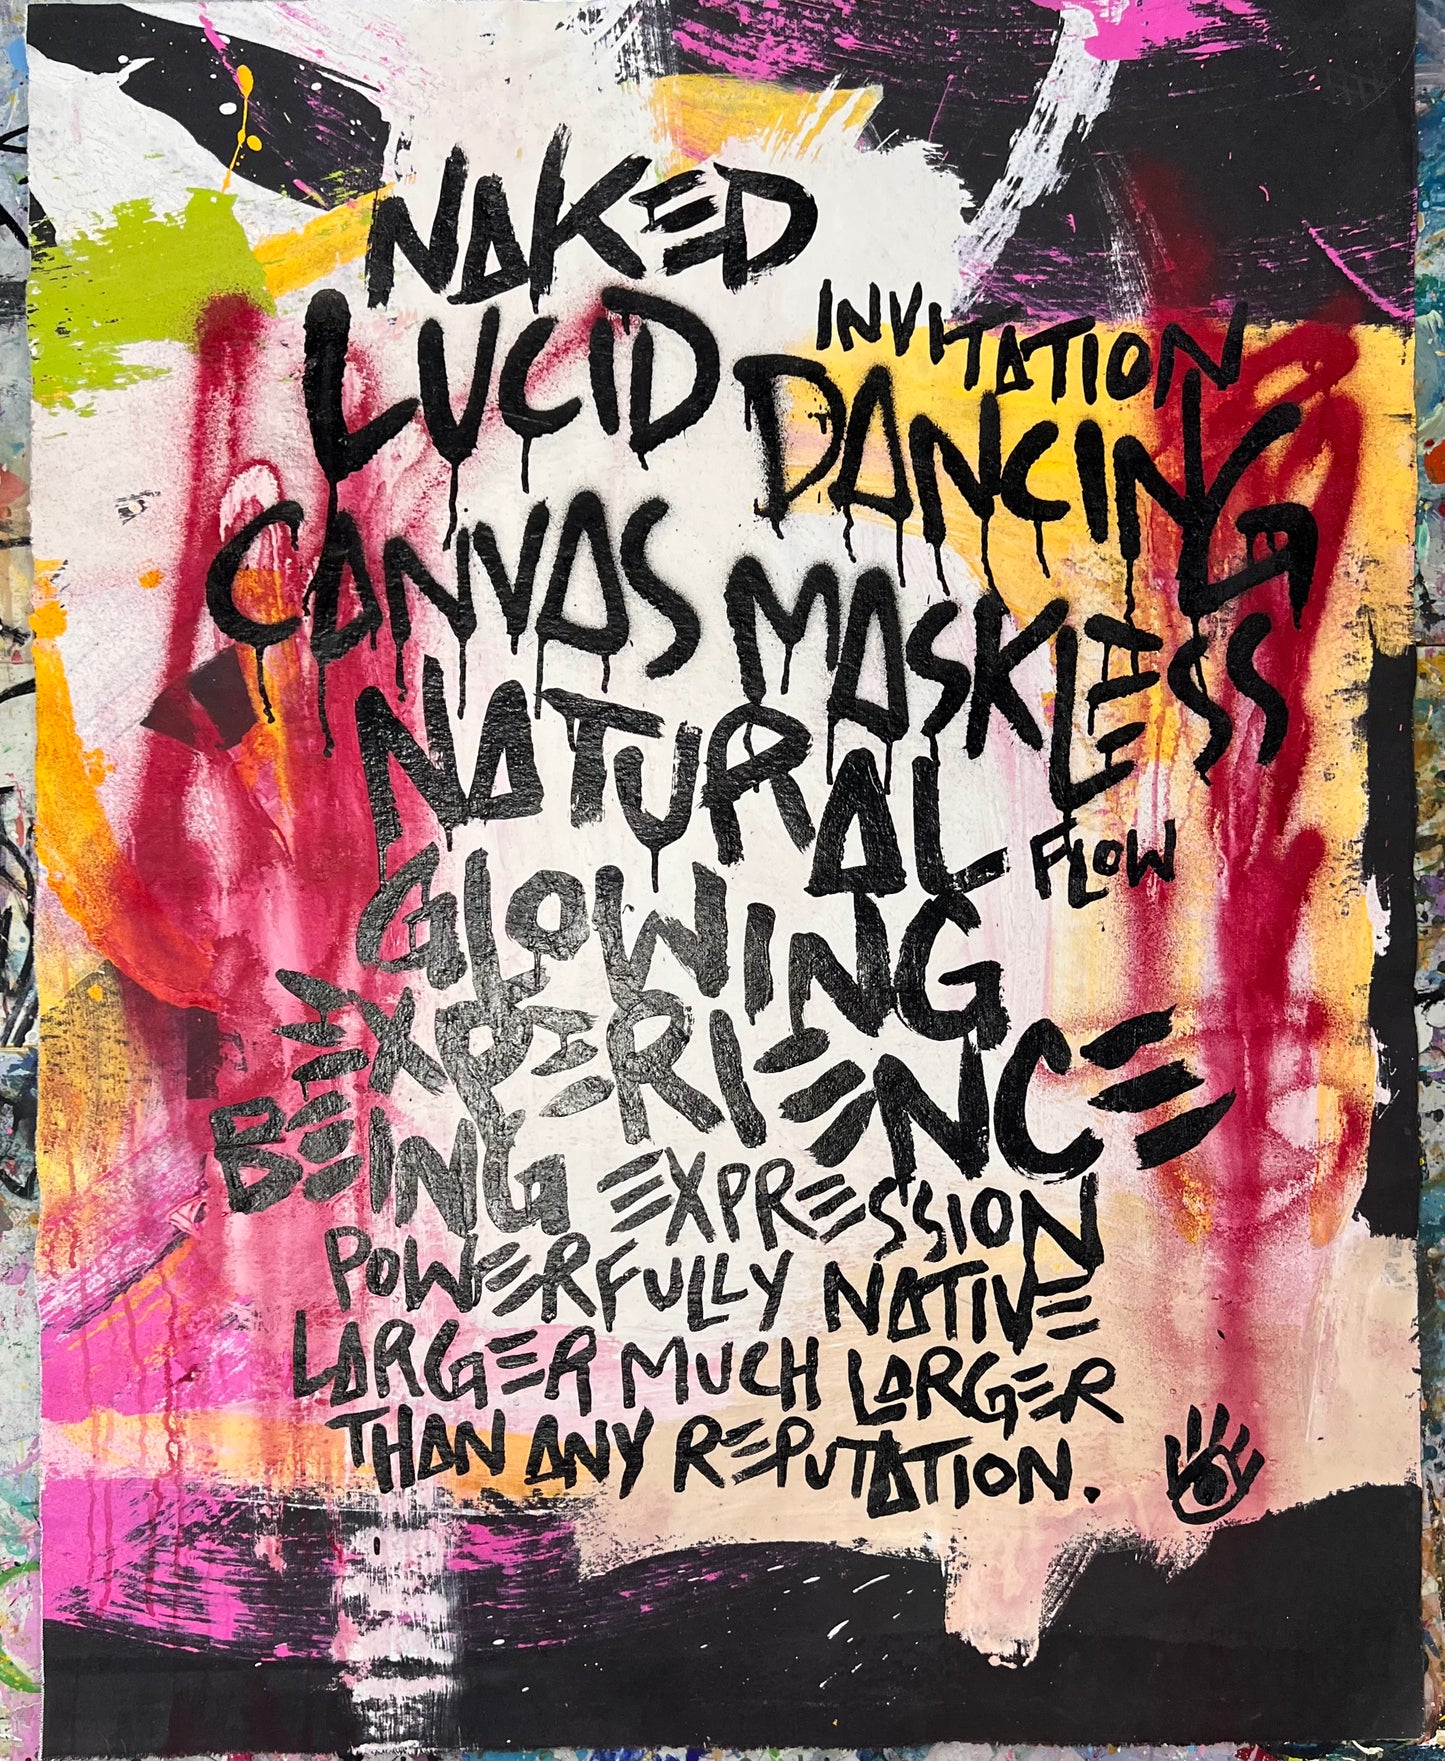 NAKED
LUCID INVITATION
DANCING
CANVAS MASKLESS
NATURAL FLOW
GLOWING
EXPERIENCE
BEING EXPRESSION
POWERFULLY NATIVE
LARGER MUCH LARGER
THAN ANY REPUTATION.